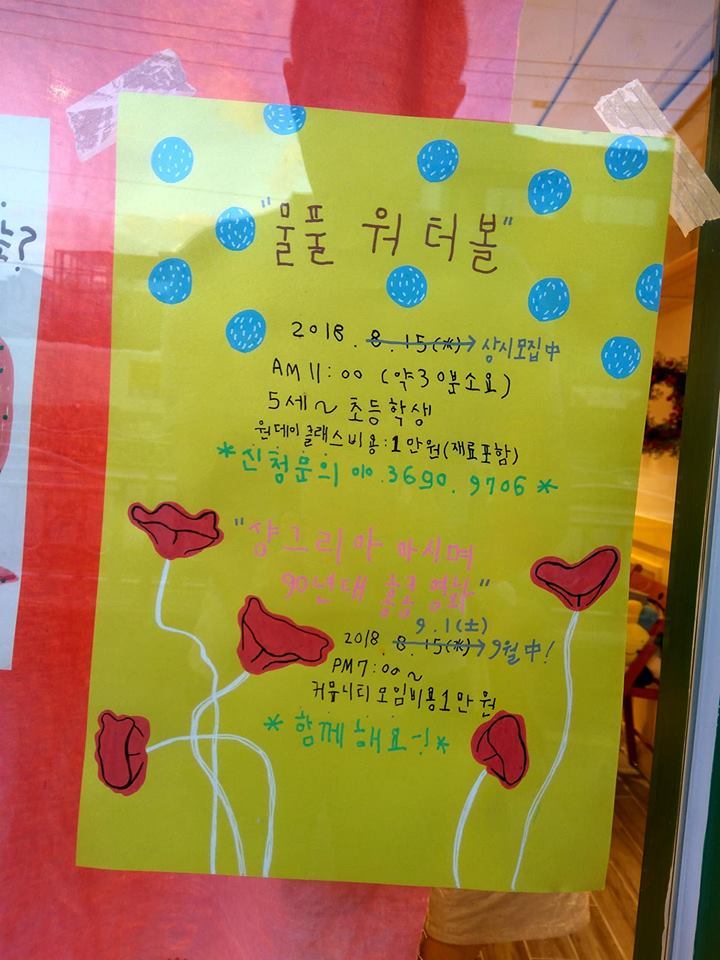 "물풀 워터볼"
2018. 8.15(水)→상시모집中
AM 11:00 (약30분소요)
5세~초등학생
원데이클래스비용:1만원(재료포함)
*신청문의 010.3690.9706*
"샹그리아 마시며
90년대 홍콩영화"
9.1(土)
2018 8.15(水)→9월中!
PM 7:00~
커뮤니티 모임비용1만원
*함께해요~!*